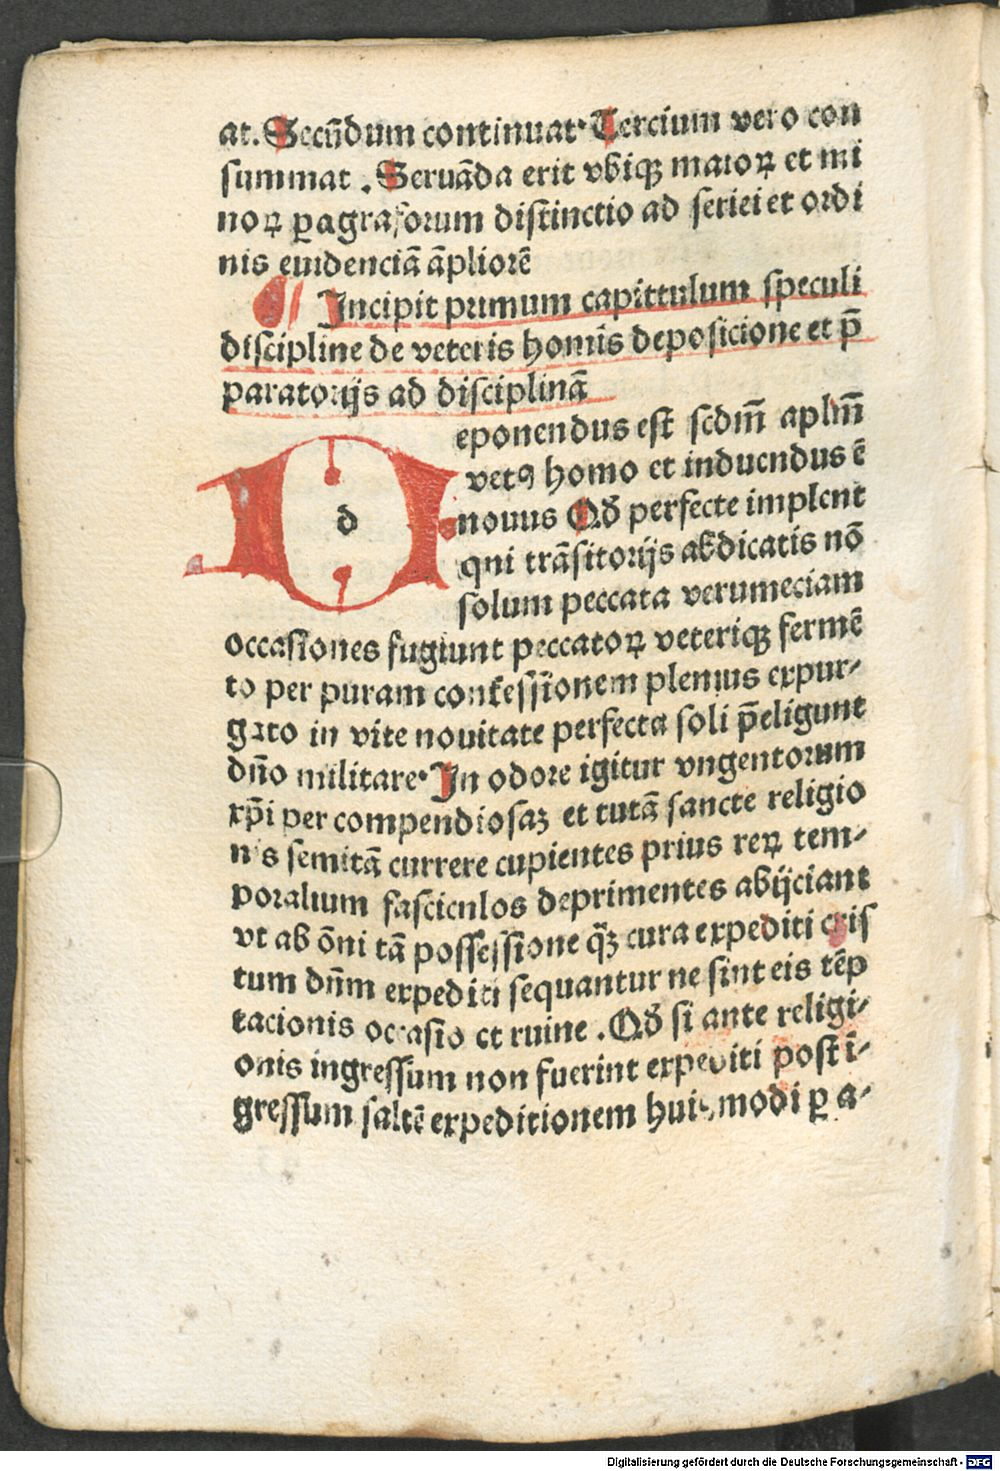 at. Secūdum continuat· Tercium vero con
summat . Seruāda erit vbiqꝫ maioꝝ et mi
noꝝ ꝑagraforum distinctio ad seriei et ordi
nis euidenciā āpliorē
Incipit primum capittulum speculi
discipline de veteris homīs deposicione et p̄
paratorijs ad disciplinā
d
eponendus est scdm̄ aplm̄
vetꝰ homo et induendus ē
nouus Qđ perfecte implent
qui trāsitorijs abdicatis nō
solum peccata verumeciam
occasiones fugiunt peccatoꝝ veteriqꝫ fermē
to per puram confessīonem plenius expur-
gato in vite nouitate perfecta soli p̄eligunt
dn̄o militare· In odore igitur vngentorum
xp̄i per compendiosaꝫ et tutā sancte religio
nis semitā currere cupientes prius reꝝ tem-
poralium fasciculos deprimentes abijciant
vt ab ōni tā possessione q̄ꝫ cura expediti cris
tum dn̄m expediti sequantur ne sint eis tēp
tacionis occasio et ruine . Qđ si ante religi-
onis ingressum non fuerint expediti post ī-
gressum saltē expeditionem huiusmodi ꝑ a-
Digitalisierung gefördert durch die Deutsche Forschungsgemeinschaft - DFG